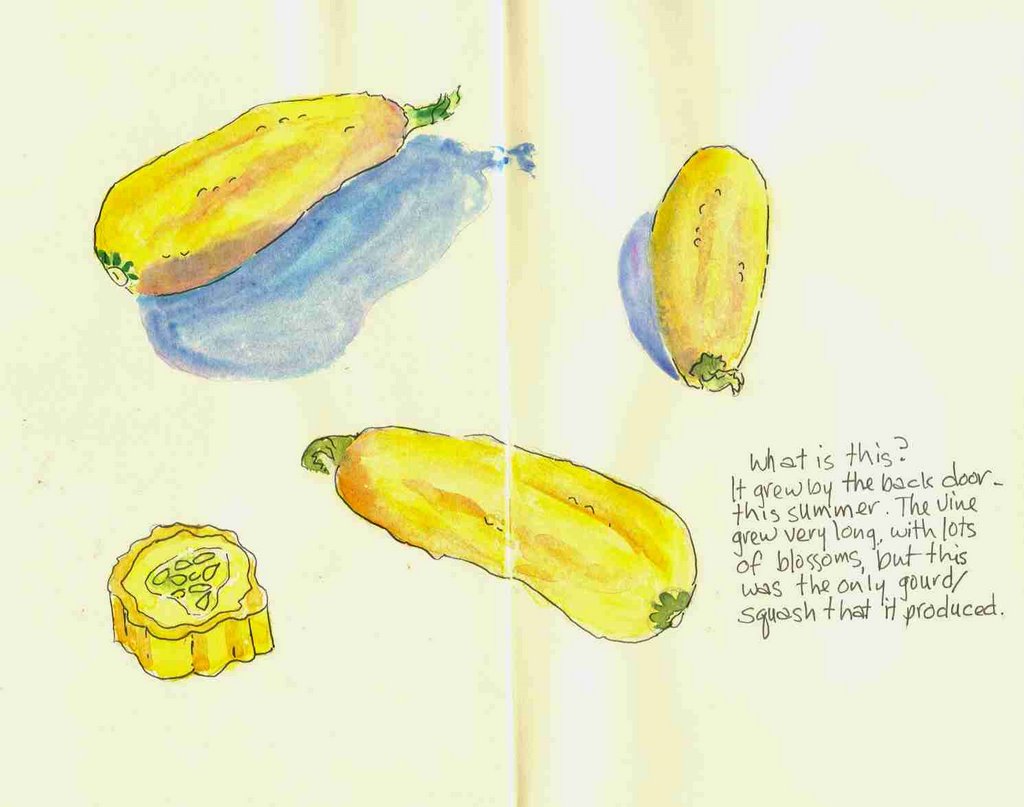 What is this?
It grew by the back door -
this summer. The vine
grew very long, with lots
of blossoms, but this
was the only gourd/
squash that it produced.